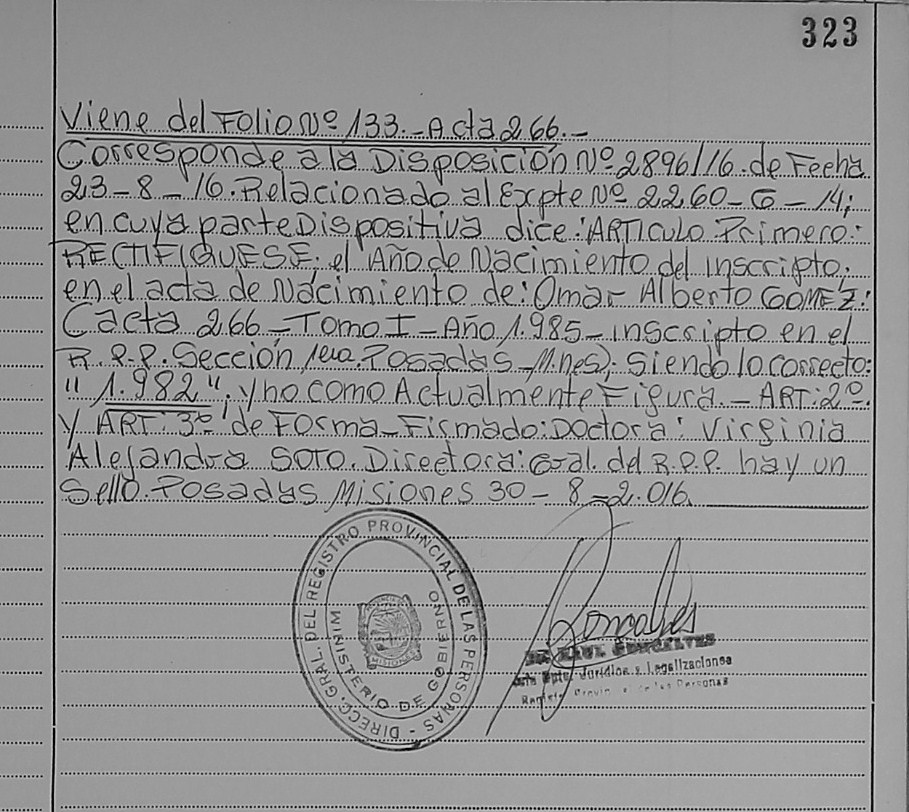 323
Viene del Folio Nº 133.- Acta 266.-
Corresponde a la Disposición Nº 2896/16. de Fecha
23-8-16. Relacionado al Expte Nº 2260-G-14;
en cuya parte Dispositiva dice: ARTICULO Primero:
RECTIFIQUESE; el Año de Nacimiento del inscripto;
en el acta de Nacimiento de: Omar Alberto GOMEZ:
Cacta 266-Tomo I-Año 1.985-inscripto en el
R.P.P. Sección 1era. Posadas-Mnes); siendo lo correcto:
"1.982"; y no como Actualmente Figura.- ART: 2º.
y ART: 3º de Forma-Firmado: Doctora: Virginia
Alejandra SOTO. Directora: Gral. del R.P.P. hay un
Sello. Posadas Misiones 30-8-2.016.
DIRECC. GRAL. DEL REGISTRO PROVINCIAL DE LAS PERSONAS -
MINISTERIO DE GOBIERNO
MISIONES
RAUL GONCALVES
Jurídica y Legalizaciones
Personas